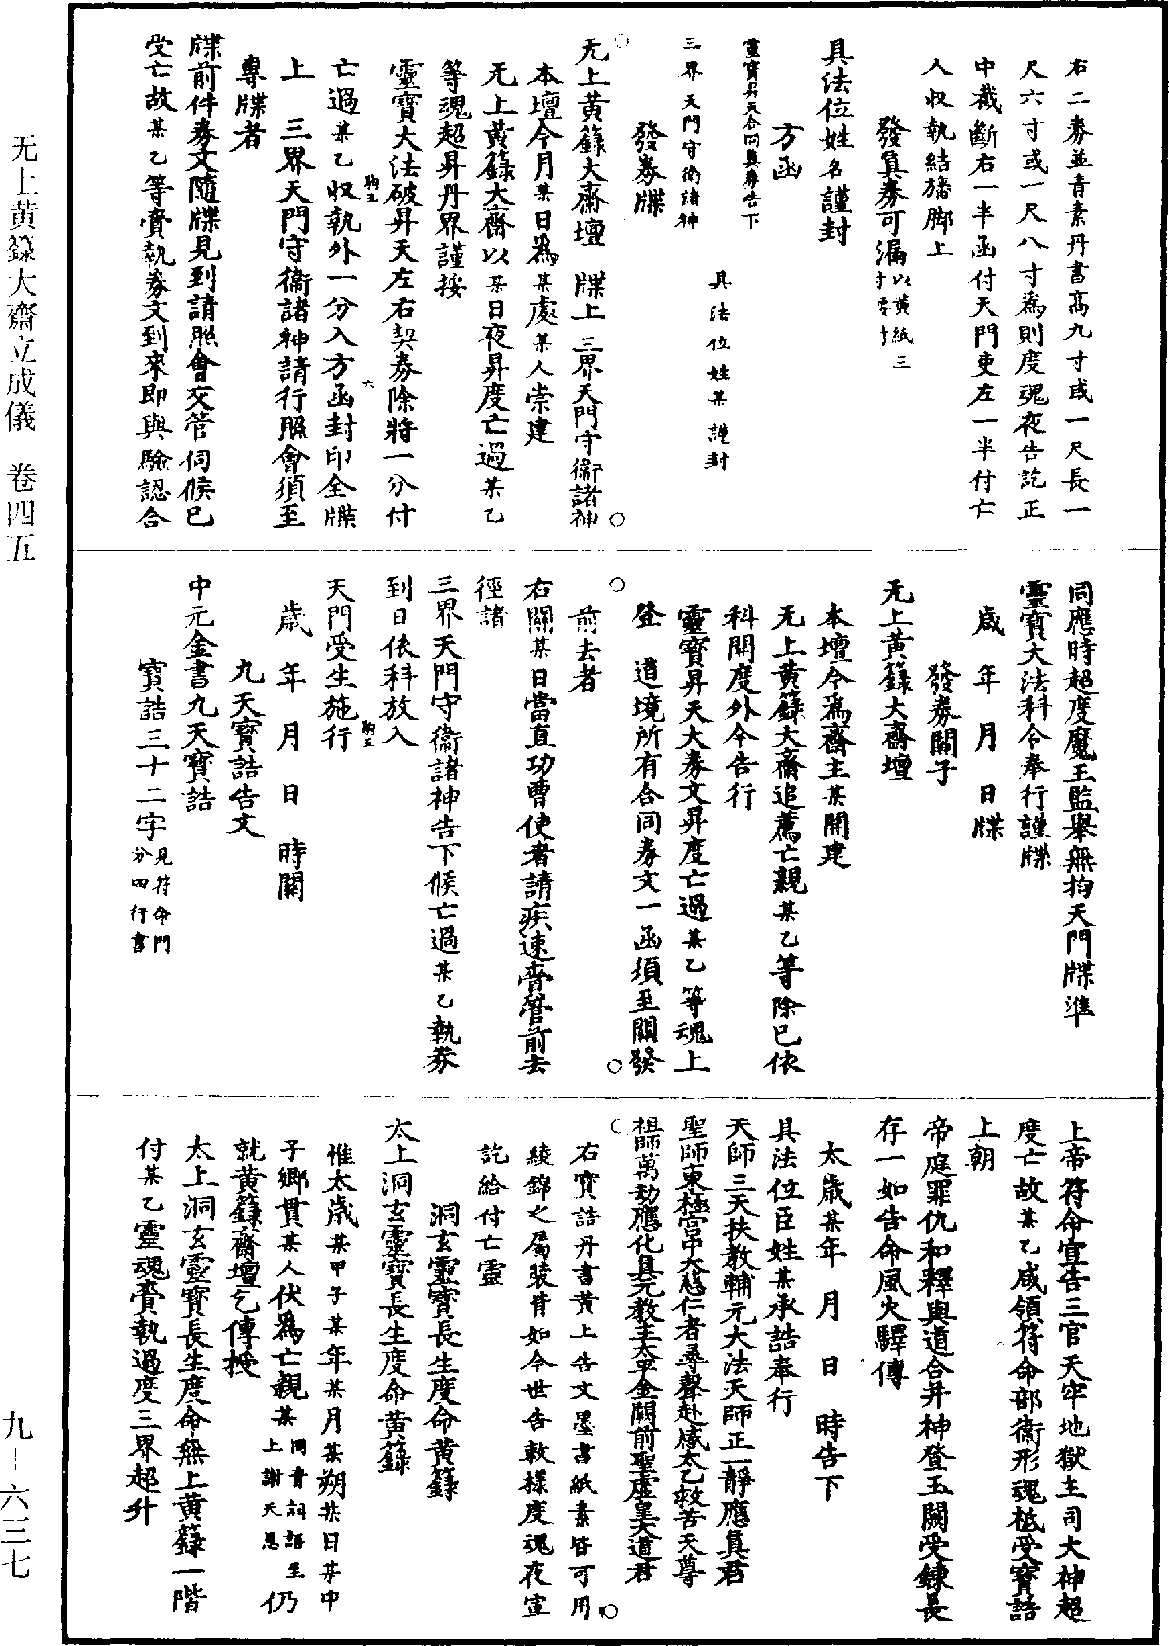 右二券並青素丹書高九寸或一尺長一
尺六寸或一尺八寸為則度魂夜告訖正
中截斷右一半函付天門吏左一半付亡
人收執結旛脚上
發眞券可漏以黃紙三
具法位姓名謹封
方函
靈寶昇天合同眞券告下
三界天門守衛諸神
具法位姓某謹封
發券牒
无上黃籙大齋壇　牒上三界天門守衛諸神
本壇今月某日為某處某人崇建
无上黃籙大齋以某日夜昇度亡過某乙
等魂超昇丹界謹按
靈寶大法破昇天左右契券除將一分付
亡過某乙收執外一分入方函封印全牒
上　三界天門守衛諸神請行照會須至
專牒者
牒前件券文隨牒見到請照會交管伺候已
受亡故某乙等賫執券文到來即與驗認合
同應時超度魔王監舉無拘天門牒準
靈寶大法科令奉行謹牒
歲　年　月　日牒
發券關子
无上黃籙大齋壇
本壇今為齋主某開建
无上黃籙大齋追薦亡親某乙等除已依
科開度外今告行
靈寶昇天大券文昇度亡過某乙等魂上
登　道境所有合同券文一函須至關發
前去者
右關某日當直功曹使者請疾速賫管前去
徑詣
三界天門守衛諸神告下候亡過某乙執券
到日依科放入
天門受生施行
歲　年　月　日　時關
九天寶誥告文
中元金書九天寶誥
寶誥三十二字見符命門
分四行書
上帝符命宣告三官天牢地獄主司大神超
度亡故某乙咸領符命部衛形魂祗受寶誥
上朝
帝庭罪仇和釋與道合并神登玉闕受鍊長
存一如告命風火驛傳
太歲某年　月　日　時告下
具法位臣姓某承誥奉行
天師三天扶教輔元大法天師正一靜應眞君
聖師東極宮中大慈仁者尋聲赴感太乙救苦天尊
祖師萬劫應化眞元教主太平金闕前聖虛皇大道君
右寶誥丹書黃上告文墨書紙素皆可用
綾錦之屬裝背如今世告敕樣度魂夜宣
訖給付亡靈
洞玄靈寶長生度命黃籙
太上洞玄靈寶長生度命黃籙
惟太歲某甲子某年某月某朔某日某中
子鄉貫某人伏為亡親某同青詞語至
上謝天恩仍
就黃籙齋壇乞傳授
太上洞玄靈寶長生度命無上黃籙一階
付某乙靈魂賫執過度三界超升
无上黃籙大齋立成儀　卷四五
九－六三七